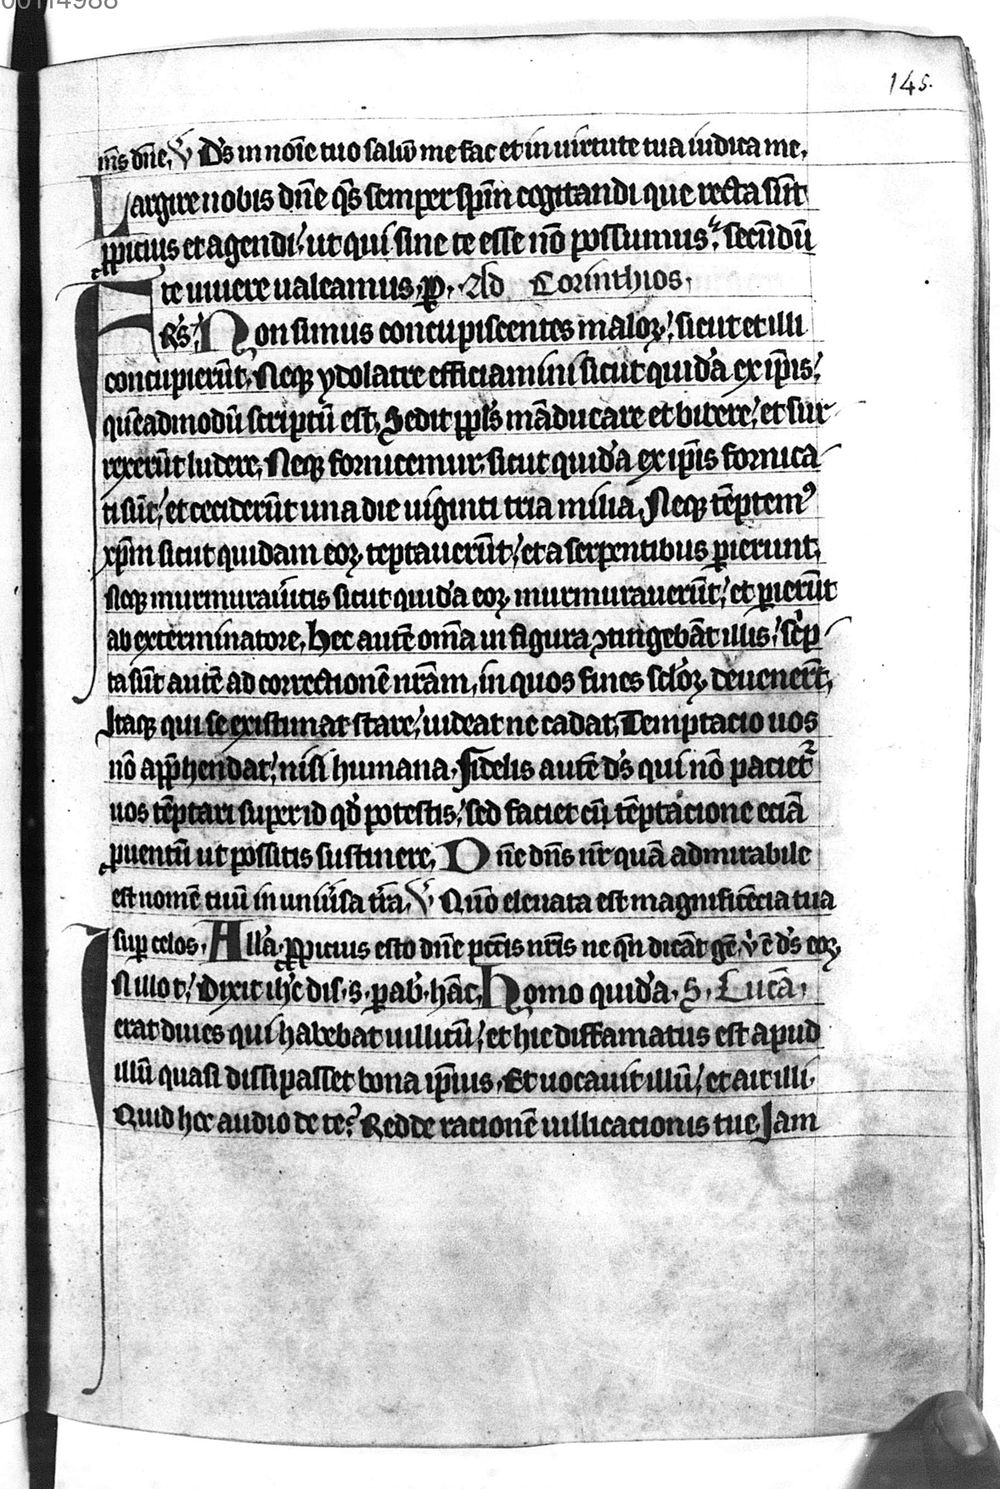 00114988
145.
m̄s dn̄e, v̄ Ds̄ in noīe tuo saluū me fac et in uirtute tua iudica me,
Largire nobis dn̄e qs̄ semper sp̄m cogitandi que recta sūt
ꝓpicius et agendi, ut qui sine te esse nō possumus, secūdū
te uiuere ualeamus, ꝑ. Ad Corinthios,
Frs̄, Non simus concupiscentes maloꝝ, sicut et illi
concupierūt, Neqꝫ ydolatre efficiamini sicut quidā ex ip̄is,
quēadmodū scriptū est, Sedit ppl̄s māducare et bibere, et sur
rexerūt ludere, Neqꝫ fornicemur, sicut quidā ex ip̄is fornica
ti sūt, et ceciderūt una die uiginti tria milia, Neqꝫ tēptemꝰ
xp̄m sicut quidam eoꝝ teptauerūt, et a serpentibus ꝑierunt,
Neqꝫ murmurauitis sicut quidā eoꝝ murmurauerūt, et ꝑierūt
ab exterminatore, Hec autē om̄a in figura ꝯtingebāt illis, sc̄p
ta sūt autē ad correctionē nr̄am, in quos fines scl̄oꝝ deuenerūt,
Itaqꝫ qui se existimat stare, uideat ne cadat, Temptacio uos
nō appͤhendat, nisi humana, Fidelis autē ds̄ qui nō patiet᷑
uos tēptari super id qd̄ potestis, sed faciet cū tēptacione eciā
ꝓuentū ut possitis sustinere, Dn̄e dn̄s nr̄ quā admirabile
est nomē tuū in uniūsa tr̄a, v̄ Qm̄o eleuata est magnificēcia tua
suꝑ celos, All̄a, ꝓpicius esto dn̄e pctīs nr̄is ne qn̄ dicāt gē, v̄ ē ds̄ eoꝝ,
In illo t̄, Dixit ih̄c dis. s. ꝑab. hāc, Homo quidā, S. Lucā,
erat diues qui habebat uillicū, et hic diffamatus est apud
illū quasi dissipasset bona ip̄ius, Et uocauit illū, et ait illi,
Quid hoc audio de te? Redde racionē uillicacionis tue, Jam